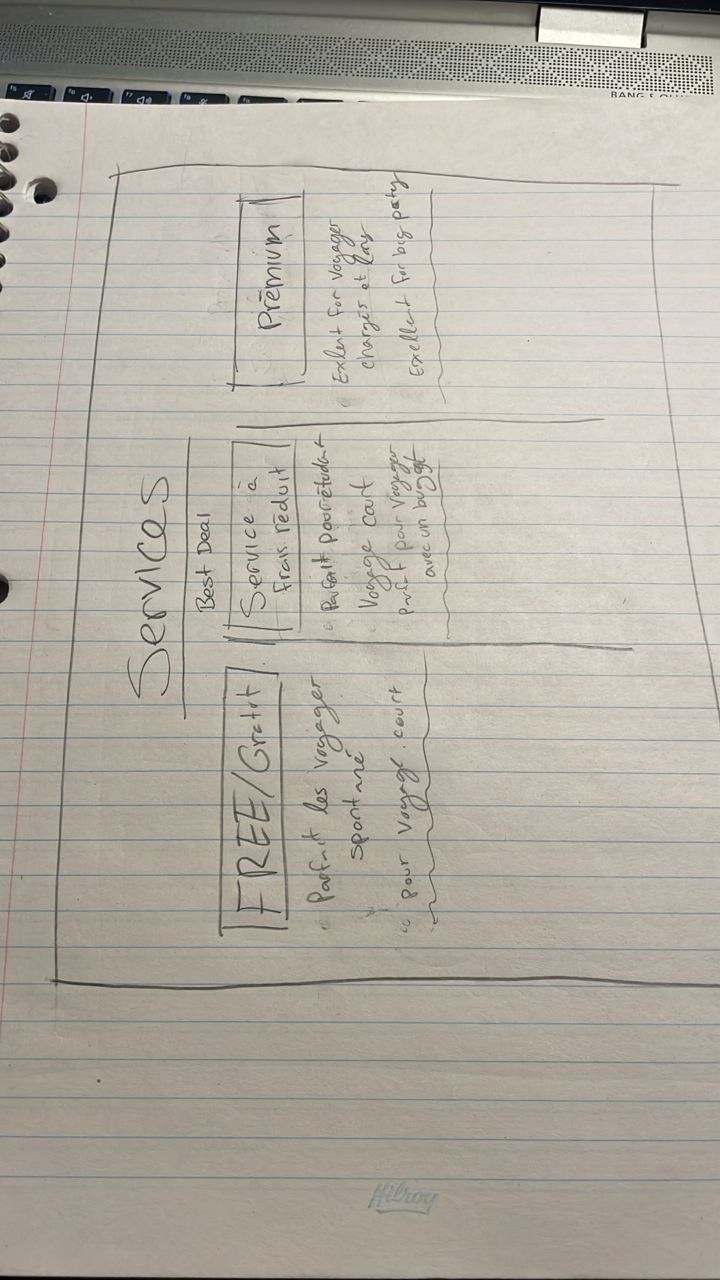 BANG & OLU
Services
FREE/Gratuit
Parfait les voyager
spontané
pour voyage court
Best Deal
Service à
frais réduit
Parfait pour étudant
Voyage court
Parfait pour voyager
avec un buget
Prēmium
Exlent for voyager
chargés et
Exellent for big paty
Hilroy